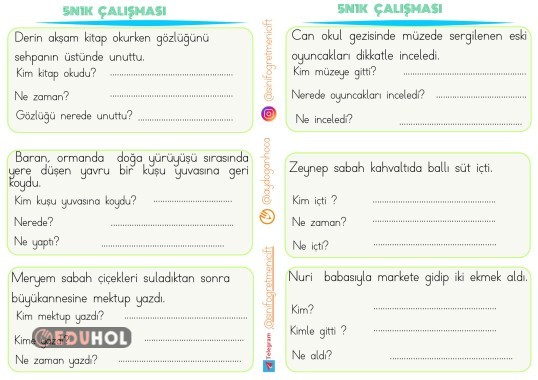 5N1K ÇALIŞMASI
Derin akşam kitap okurken gözlüğünü
sehpanın üstünde unuttu.
Kim kitap okudu? ........................................
Ne zaman? ........................................
Gözlüğü nerede unuttu? ........................................
Baran, ormanda doğa yürüyüşü sırasında
yere düşen yavru bir kuşu yuvasına geri
koydu.
Kim kuşu yuvasına koydu? ........................................
Nerede? ........................................
Ne yaptı? ........................................
Meryem sabah çiçekleri suladıktan sonra
büyükannesine mektup yazdı.
Kim mektup yazdı? ........................................
Kime yazdı? ........................................
EDUHOL
Ne zaman yazdı? ........................................
@sinifogretmenicift
@aydoganhoca
Telegram @sinifogretmenicift
5N1K ÇALIŞMASI
Can okul gezisinde müzede sergilenen eski
oyuncakları dikkatle inceledi.
Kim müzeye gitti? ........................................
Nerede oyuncakları inceledi? ........................................
Ne inceledi? ........................................
Zeynep sabah kahvaltıda ballı süt içti.
Kim içti ? ........................................
Ne zaman? ........................................
Ne içti? ........................................
Nuri babasıyla markete gidip iki ekmek aldı.
Kim? ........................................
Kimle gitti ? ........................................
Ne aldı? ........................................